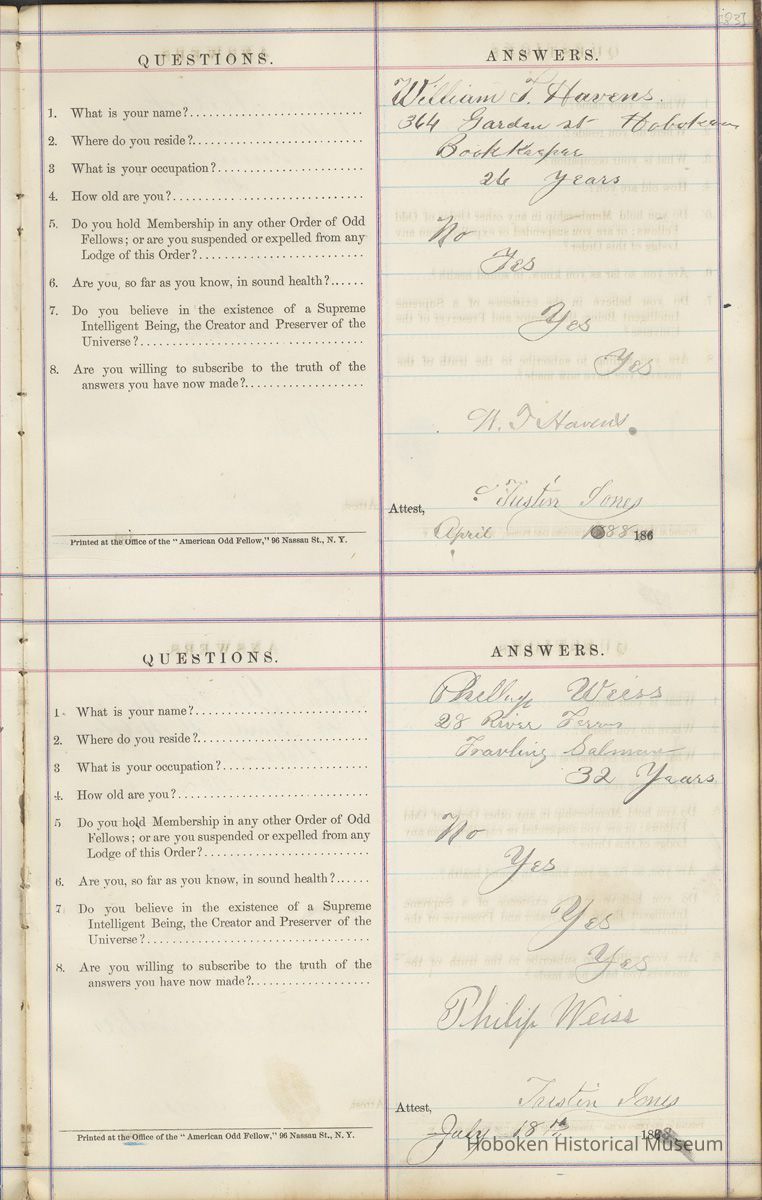 [23]
QUESTIONS.
ANSWERS.
1. What is your name?
William T. Havens.
2. Where do you reside?
364 Garden st Hoboken
3 What is your occupation?
BookKeeper
4. How old are you?
26 Years
5. Do you hold Membership in any other Order of Odd
Fellows; or are you suspended or expelled from any
Lodge of this Order?
No
6. Are you, so far as you know, in sound health?
Yes
7. Do you believe in the existence of a Supreme
Intelligent Being, the Creator and Preserver of the
Universe?
Yes
8. Are you willing to subscribe to the truth of the
answers you have now made?
Yes
W. T Havens.
Attest, Tustin Jones
April 1888 186
Printed at the Office of the "American Odd Fellow," 96 Nassau St., N. Y.
QUESTIONS.
ANSWERS.
1. What is your name?
Phillip Weiss
2. Where do you reside?
28 River Terrs
3 What is your occupation?
Travling Salman
4. How old are you?
32 Years
5 Do you hold Membership in any other Order of Odd
Fellows; or are you suspended or expelled from any
Lodge of this Order?
No
6. Are you, so far as you know, in sound health?
Yes
7 Do you believe in the existence of a Supreme
Intelligent Being, the Creator and Preserver of the
Universe?
Yes
8. Are you willing to subscribe to the truth of the
answers you have now made?
Yes
Philip Weiss
Attest, Tustin Jones
July 18th 188
Printed at the Office of the "American Odd Fellow," 96 Nassau St., N. Y.
Hoboken Historical Museum